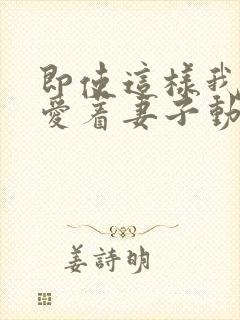 即使這樣我
愛着妻子動
姜詩明